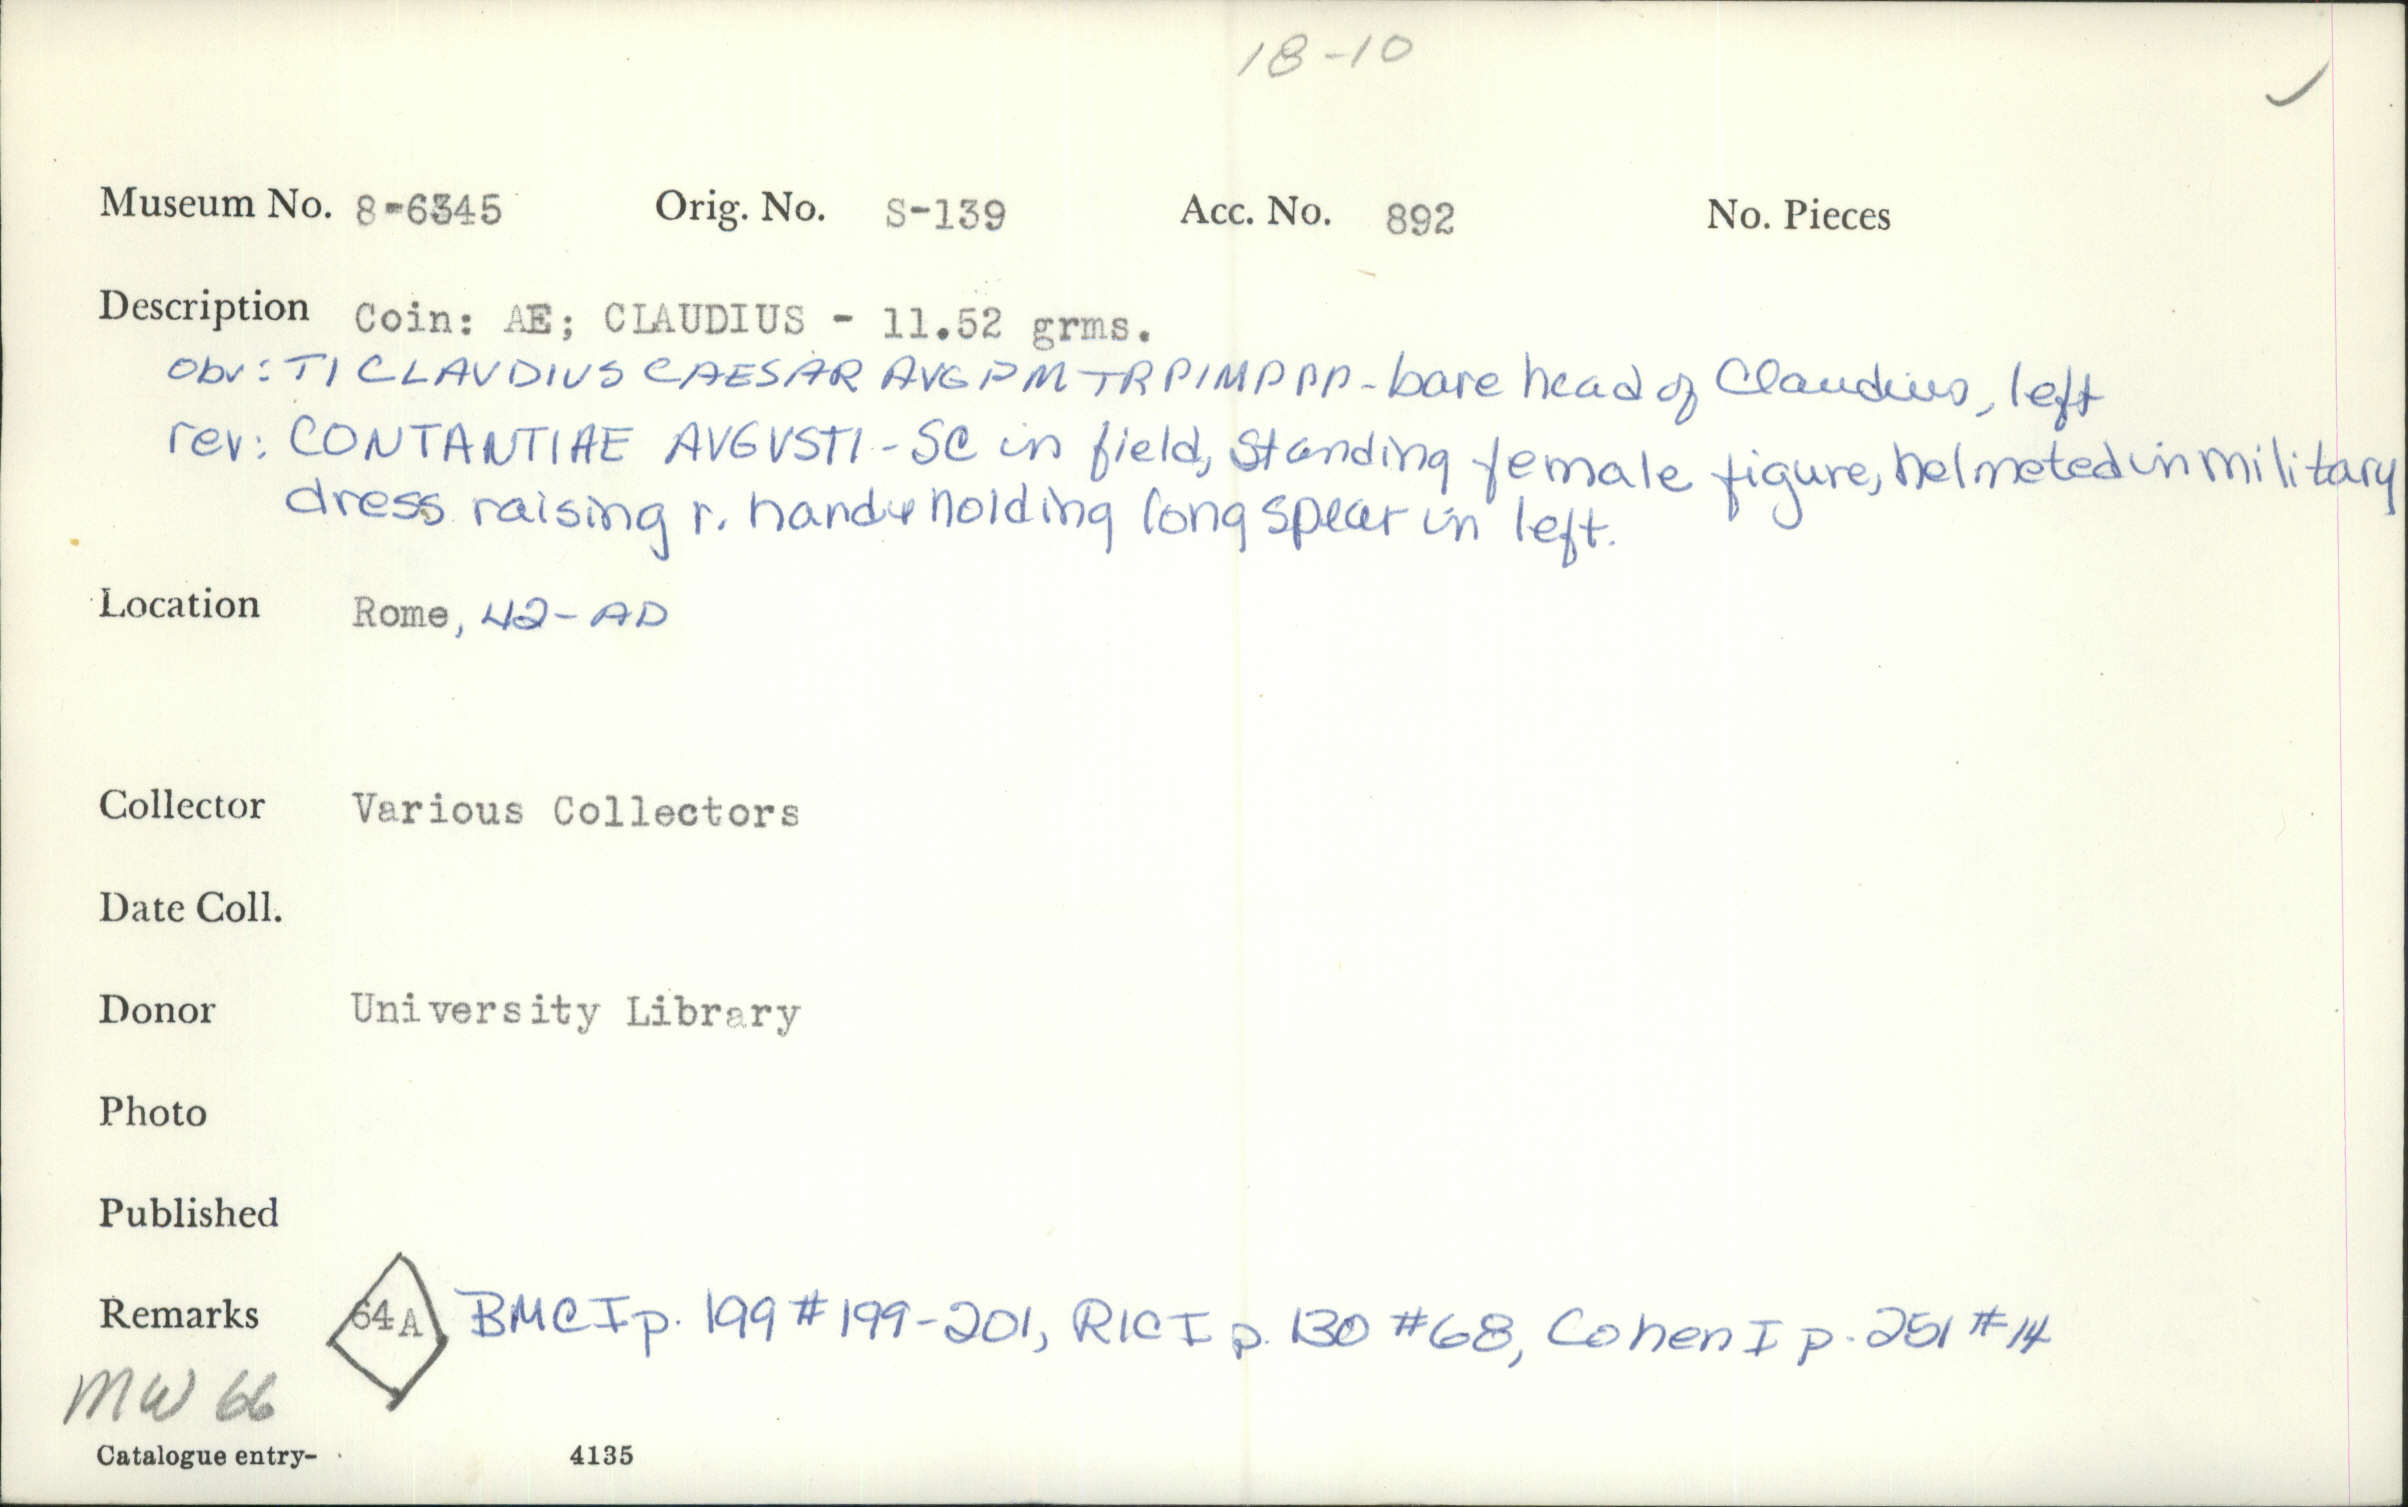 18-10
Museum No. 8-6345 Orig. No. S-139 Acc. No. 892 No. Pieces
Description Coin: AE; CLAUDIUS - 11.52 grms.
obv: TI CLAVDIVS CAESAR AVG PM TR P IMP PP - bare head of Claudius, left
rev: CONTANTIAE AVGVSTI - SC in field, Standing female figure, helmeted in military
dress raising r. hand & holding long spear in left.
Location Rome, 42-AD
Collector Various Collectors
Date Coll.
Donor University Library
Photo
Published
Remarks 64A BMC I p. 199 # 199-201, RIC I p. 130 #68, Cohen I p. 251 #14
MW 66
Catalogue entry- 4135